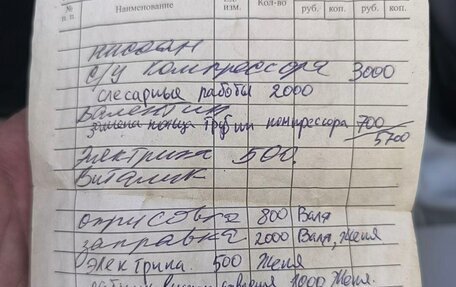 № п.п. Наименование Ед. изм. Кол-во руб. коп. руб. коп.
ниссан
с/у компрессора 3000
слесарные работы 2000
Валентин
замена конца трубки компрессора 700
5700
Электрика 500
Виталик
оприсовка 800 Валя
заправка 2000 Валя, Женя
Электрика. 500 Женя
давления 1000 Женя.